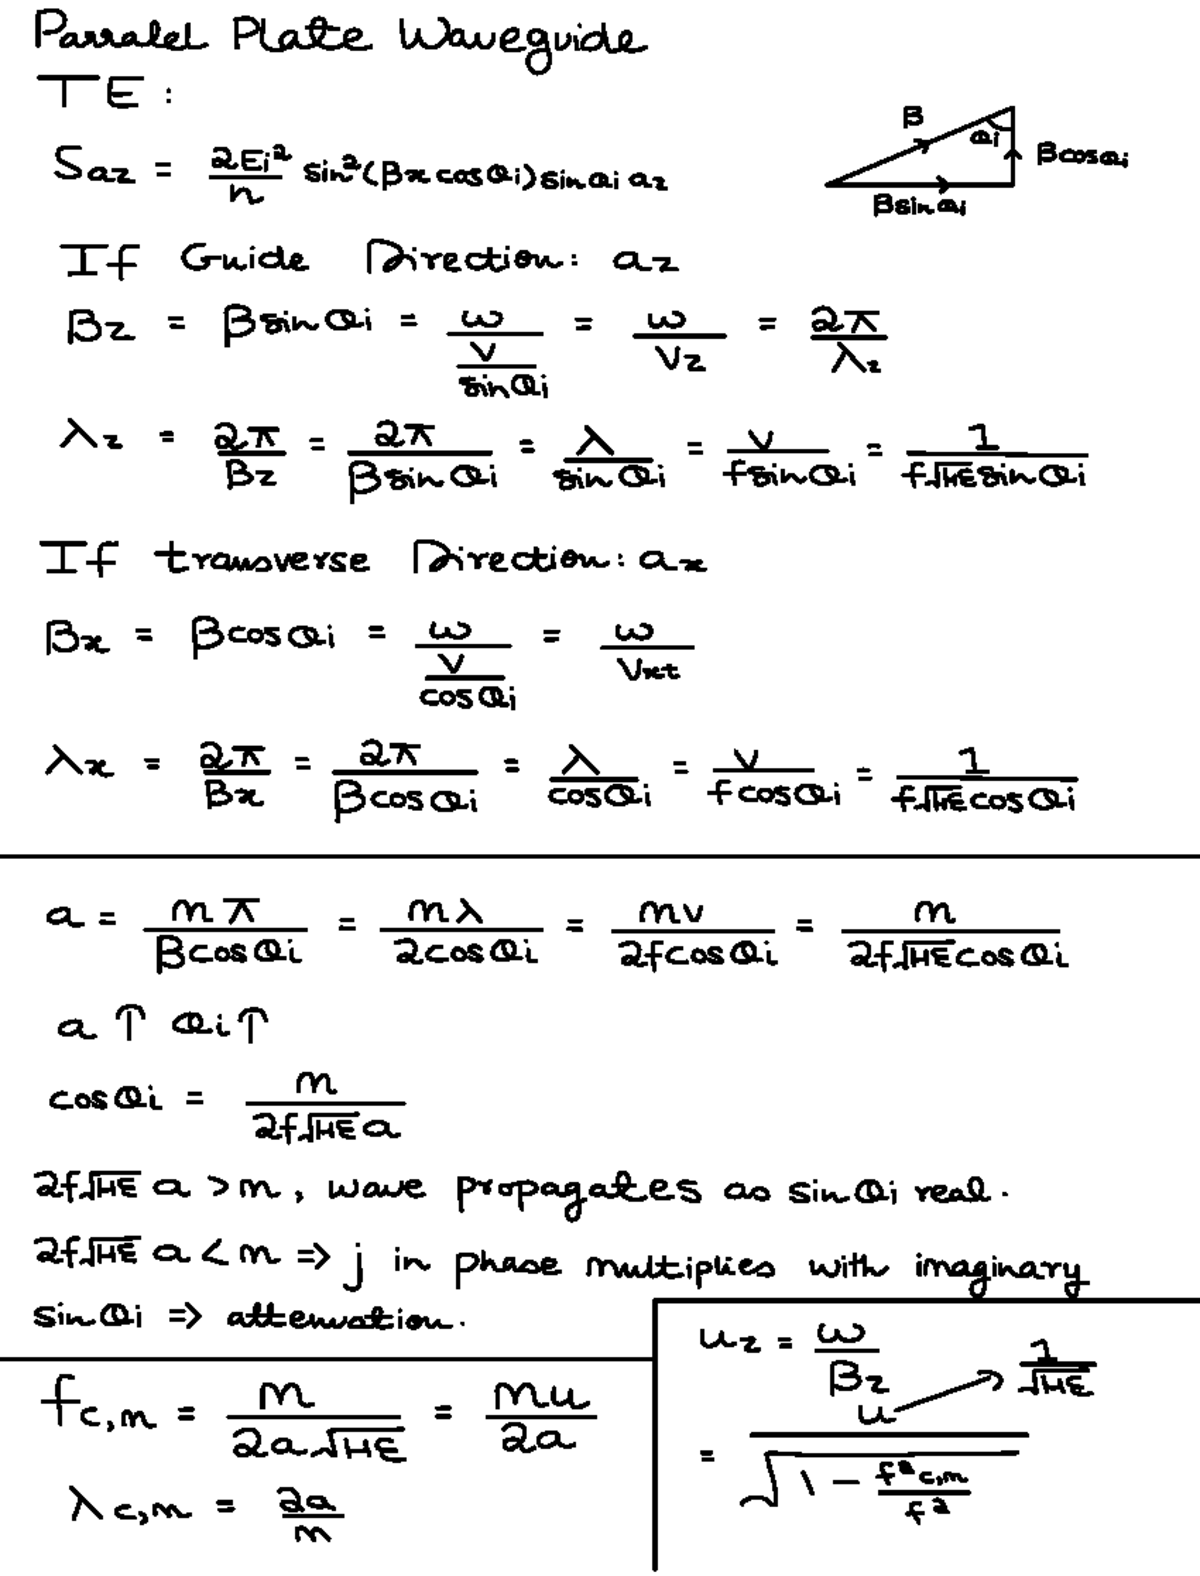 Parralel Plate Waveguide
TE:
S_az = 2Ei²/η sin²(βx cosθi) sinθi az
β θi βcosθi
βsinθi
If Guide Direction: az
βz = βsinθi = ω/(v/sinθi) = ω/vz = 2π/λz
λz = 2π/βz = 2π/(βsinθi) = λ/sinθi = v/(fsinθi) = 1/(f√με sinθi)
If transverse Direction: ax
βx = βcosθi = ω/(v/cosθi) = ω/vxt
λx = 2π/βx = 2π/(βcosθi) = λ/cosθi = v/(fcosθi) = 1/(f√με cosθi)
a = mπ/(βcosθi) = mλ/(2cosθi) = mv/(2fcosθi) = m/(2f√με cosθi)
a ↑ θi ↑
cosθi = m/(2f√με a)
2f√με a > m, wave propagates as sinθi real.
2f√με a < m => j in phase multiplies with imaginary
sinθi => attenuation.
fc,m = m/(2a√με) = mu/2a
λc,m = 2a/m
uz = ω/βz
= u/√(1 - f²c,m/f²) → 1/√με